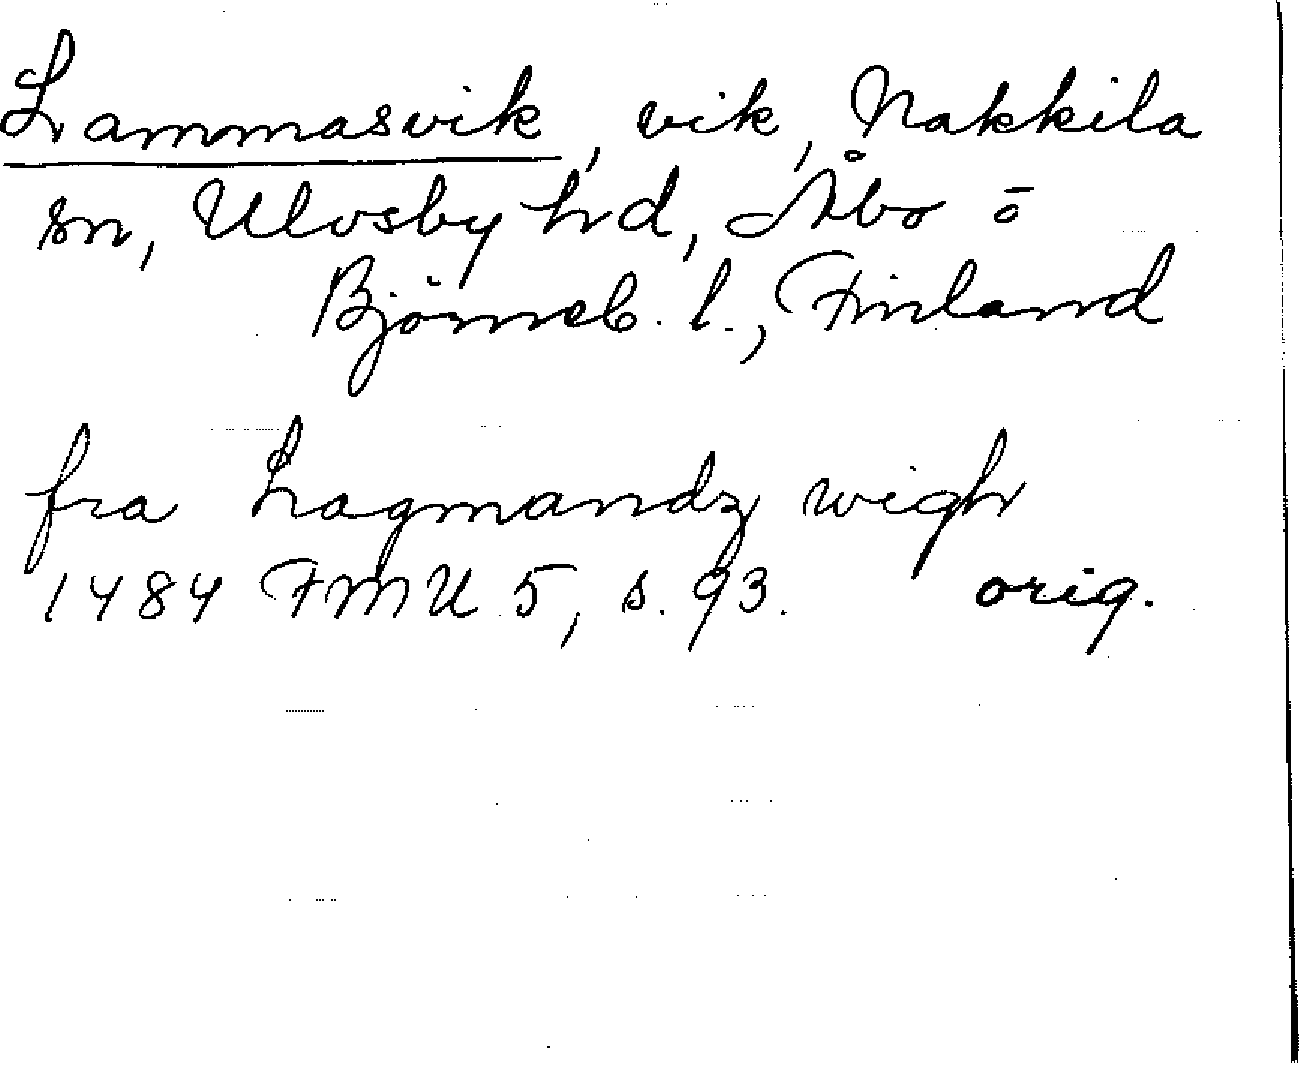 Lammasvik, vik, Nakkila
sn, Ulvsby hd, Åbo o
Björneb. l., Finland
fra Lagmandz wigh
1484 FMU 5, s. 93. orig.